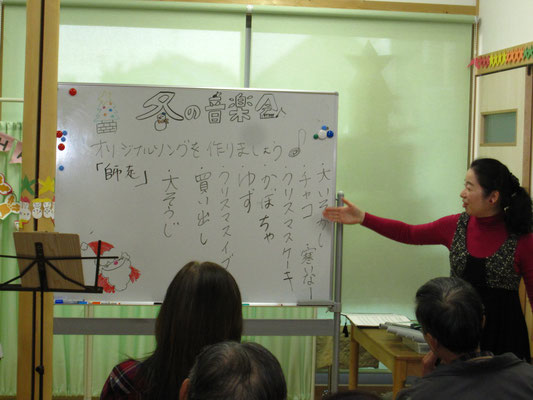 冬の音楽会
オリジナルソングを作りましょう
大いそがし
・チャコ 寒いなー
クリスマスケーキ
・かぼちゃ
・ゆず
・クリスマスイブ
・買い出し
・大そうじ
「師走」